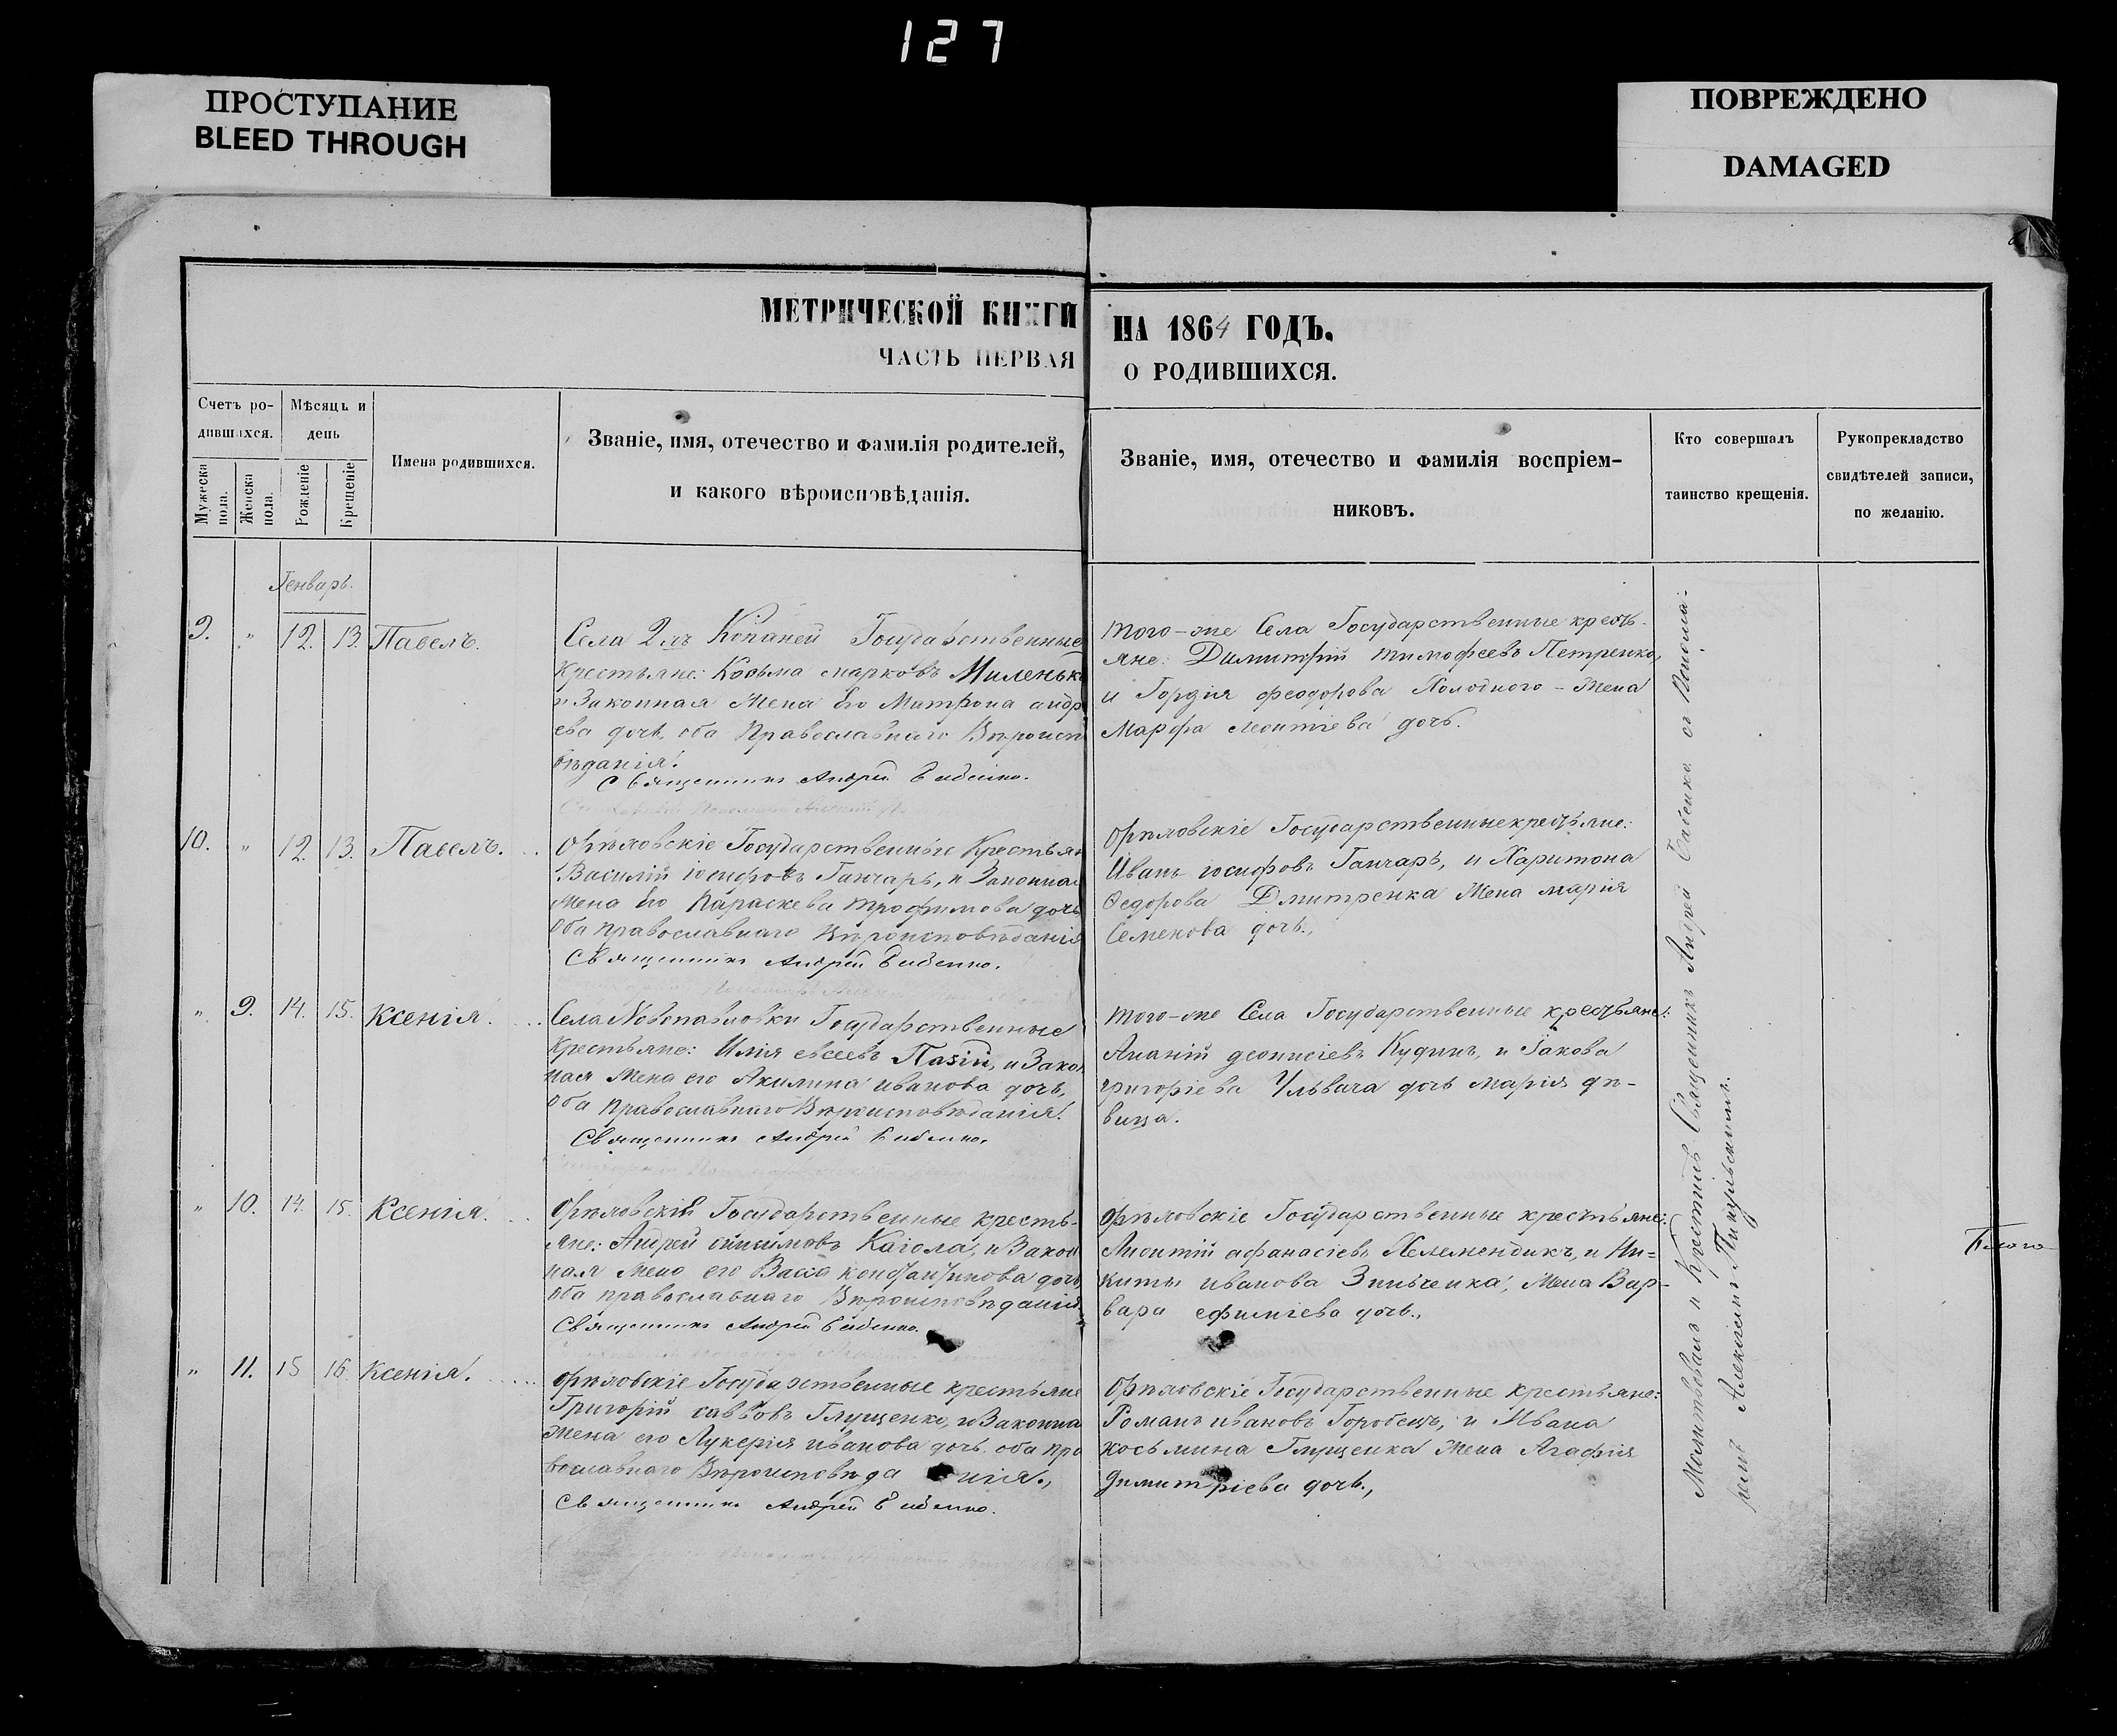 127
ПРОСТУПАНИЕ
BLEED THROUGH
ПОВРЕЖДЕНО
DAMAGED
МЕТРИЧЕСКОЙ КНИГИ
ЧАСТЬ ПЕРВАЯ
НА 1864 ГОДЪ.
О РОДИВШИХСЯ.
Счетъ ро-
дившихся.
Мужеска пола.
Женска пола.
Мѣсяцъ и
день
Рожденіе
Крещеніе
Имена родившихся.
Званіе, имя, отечество и фамилія родителей,
и какого вѣроисповѣданія.
Званіе, имя, отечество и фамилія воспріем-
никовъ.
Кто совершалъ
таинство крещенія.
Рукоприкладство
свидѣтелей записи,
по желанію.
Генварь.
9. " 12. 13. Павелъ.
Села 2хъ Копаней Государственные
Крестьяне: Косьма Марковъ Миленьк
и Законная Жена Его Матрона андр
ева дочь, оба Православнаго Вѣроисп
вѣданія.
Священникъ Андрей
того-же Села Государственные кресть-
яне: Димитрій тимофеевъ Петренко,
и Гордія феодорова Холодного - Жена
Марфа леонтіева дочь.
10. " 12. 13. Павелъ.
Орѣловскіе Государственные Крестьян
Василій іосифовъ Ганчаръ, и Законная
Жена Его Параскева трофимова дочь
Оба православнаго Вѣроисповѣданія
Священникъ Андрей
Орѣловскіе Государственные крестьяне:
Иванъ іосифовъ Ганчаръ, и Харитона
Федорова Дмитренка Жена марія
Семенова дочь.,
" 9. 14. 15. Ксенія.
Села Новопавловки Государственные
Крестьяне: Илія евсеевъ Пазій, и Закон
ная Жена его Акилина иванова дочь,
оба Православнаго Вѣроисповѣданія.
Священникъ Андрей
того-же Села Государственные крестьяне:
Ананій деонисіевъ Кудинъ, и Іакова
григоріева Ульвача дочь марія дѣ-
вица.
" 10. 14. 15. Ксенія.
Орѣловскій Государственные кресть-
яне: Андрей Кагола, и Закон
ная Жена его Васса константинова дочь
оба православнаго Вѣроисповѣданія
Священникъ Андрей
Орѣловскіе Государственные крестьяне:
Леонтій афанасіевъ Келемендикъ, и Ни-
киты иванова Зинченка, Жена Вар-
вара ефиміева дочь.,
" 11. 15 16. Ксенія.
Орѣловскіе Государственные крестьяне
Григорій саввовъ Глущенко, и Законна
Жена его Лукерія иванова дочь. оба пра
вославнаго Вѣроисповѣданія.,
Священникъ Андрей
Орѣловскіе Государственные крестьяне:
Романъ ивановъ Горобецъ, и Ивана
косьмина Глущенка Жена Агафія
Димитріева дочь.,
Молитвовалъ и Крестилъ Священникъ Андрей съ Понома-
ремъ Алексіемъ Пикульскимъ.